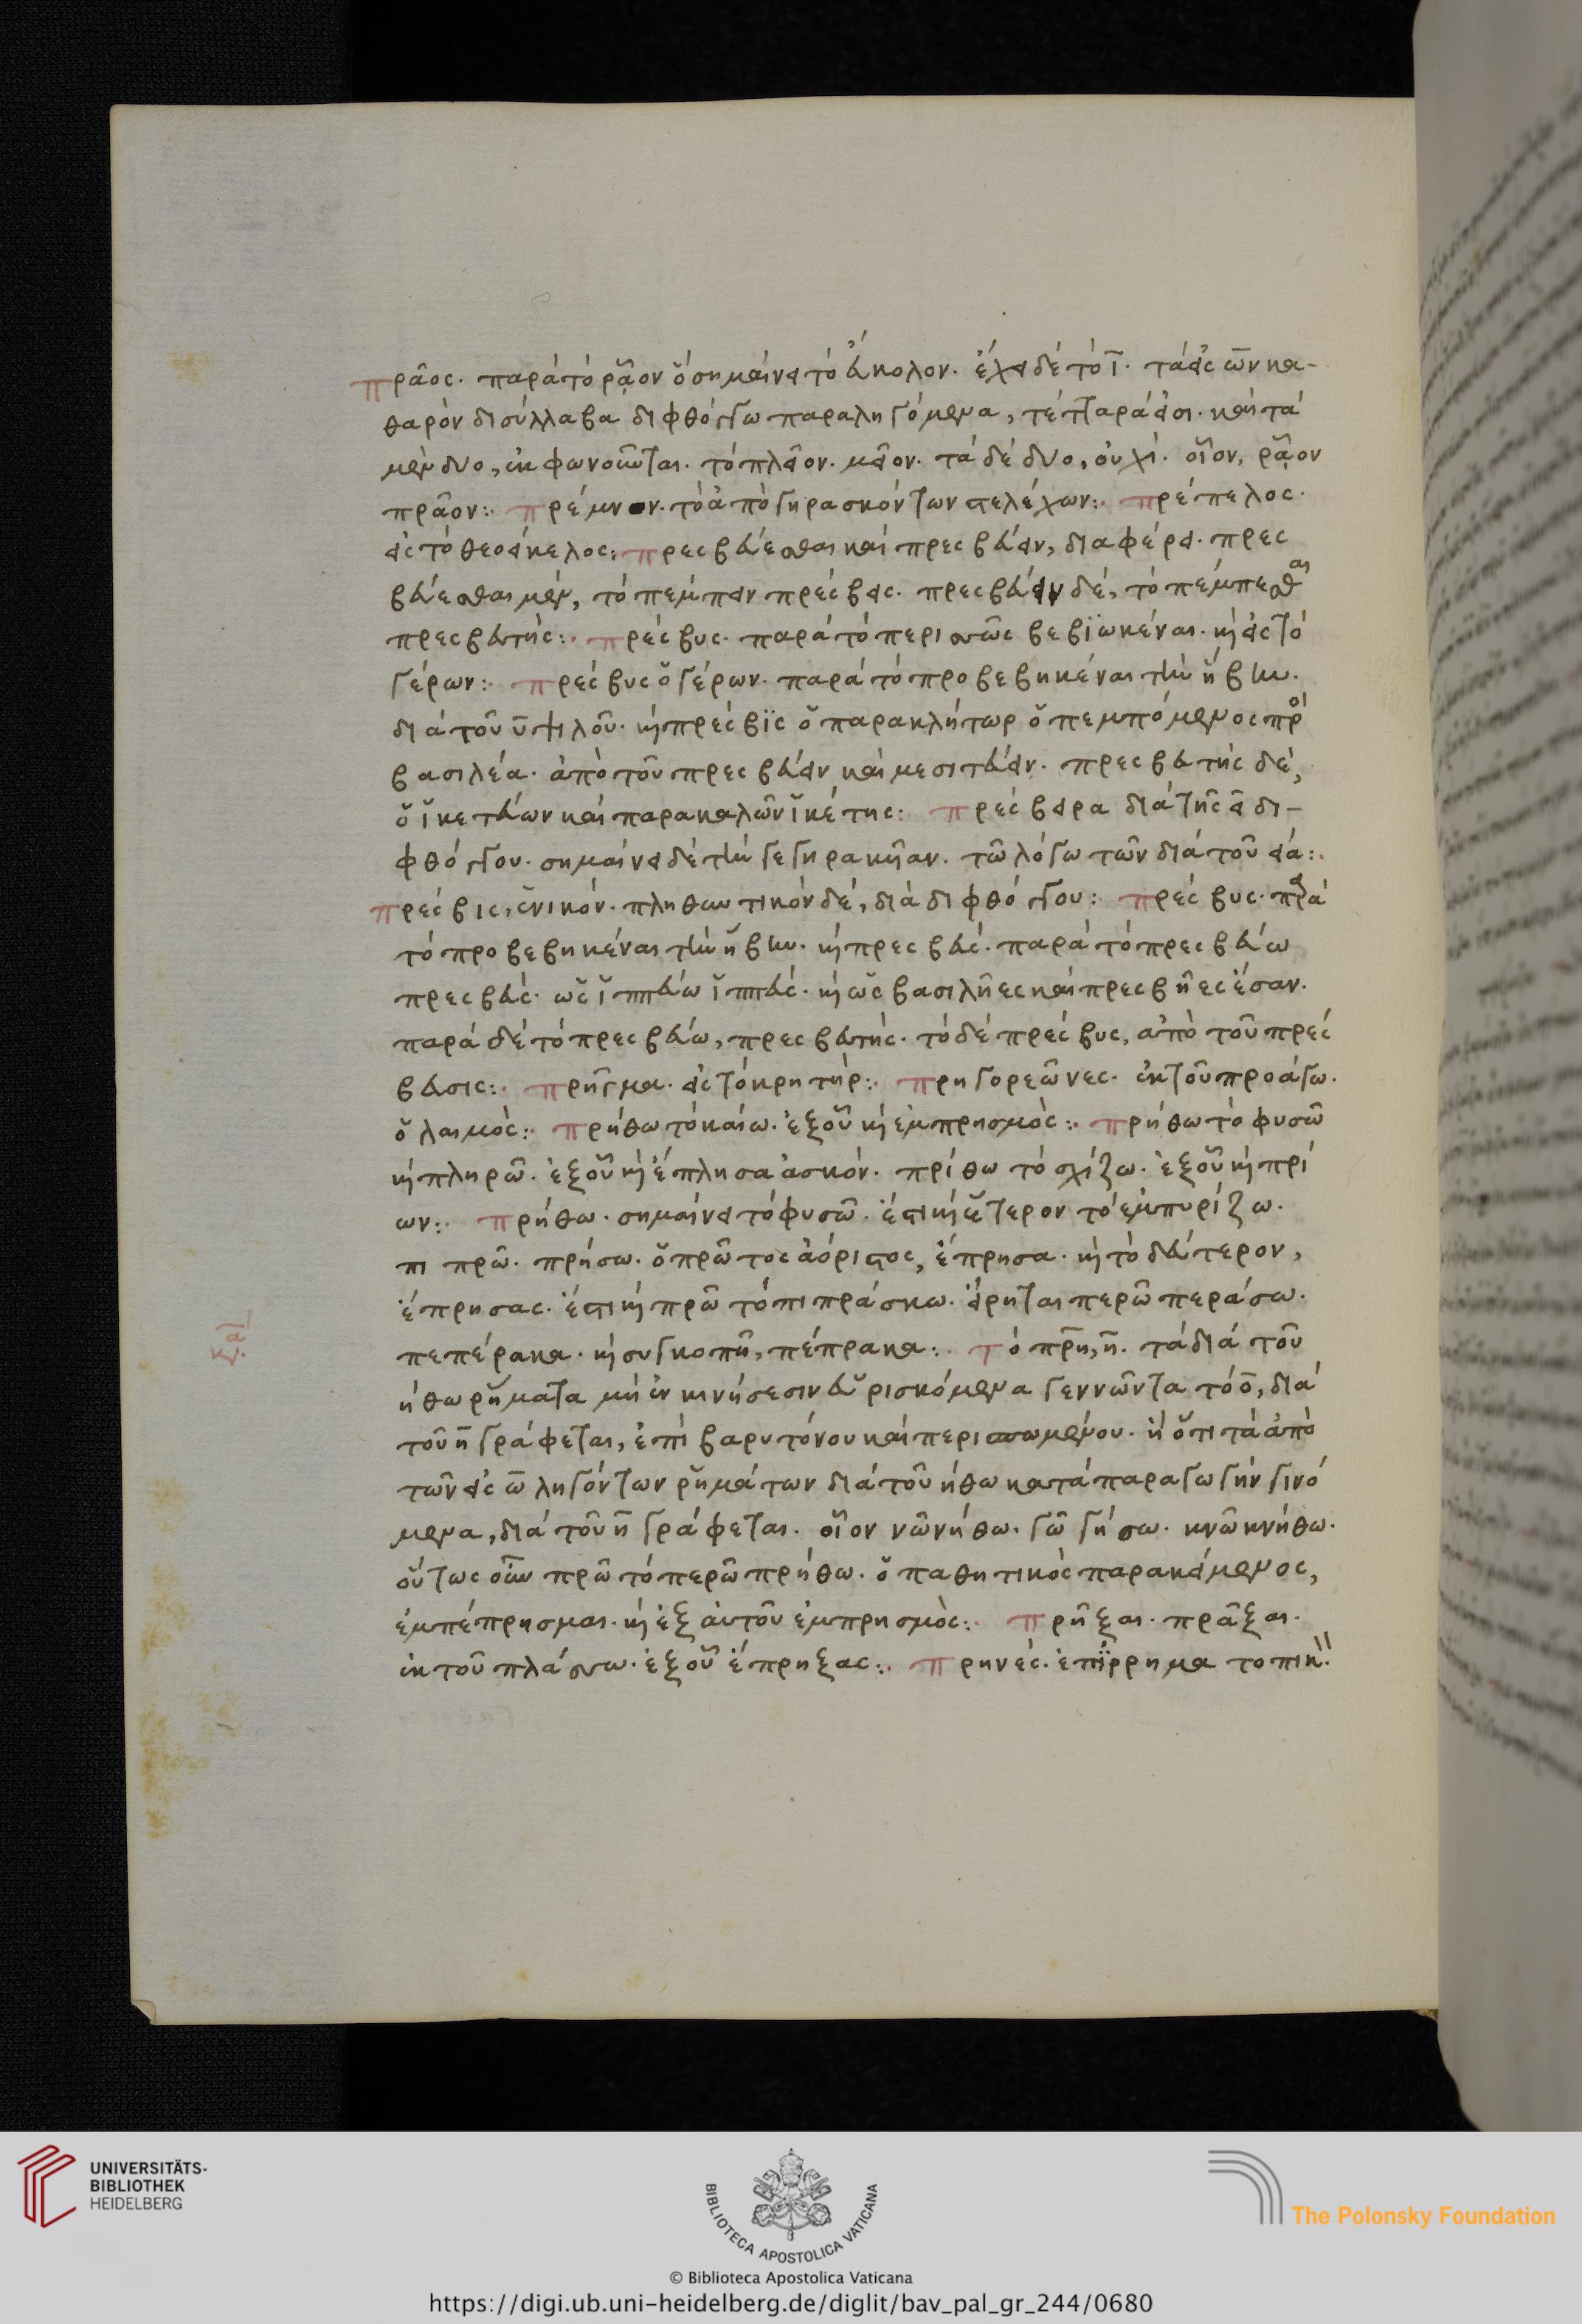 πρᾶος. παρὰ τὸ ῥᾷον ὃ σημαίνει τὸ εὔκολον. ἔχει δὲ τὸ ῑ. τὰ εἰς ω̄ν κα-
θαρὸν δισύλλαβα διφθόγγω παραληγόμενα, τέτταρά εἰσι. καὶ τὰ
μὲν δύο, ἐκφωνοῦνται. τὸ πλεῖον. μεῖον. τὰ δὲ δύο, οὐχί. οἷον, ῥᾷον
πρᾶον: πρέμνον. τὸ ἀπὸ γηρασκόντων στελέχων: πρέπελος.
εἰς τὸ θεοείκελος: πρεσβεύεσθαι καὶ πρεσβεύειν, διαφέρει. πρεσ
βεύεσθαι μὲν, τὸ πέμπειν πρέσβεις. πρεσβεύειν δέ, τὸ πέμπεσθαι
πρεσβευτής: πρέσβυς. παρὰ τὸ περισσῶς βεβϊωκέναι. καὶ εἰς τὸ
γέρων: πρέσβυς ὁ γέρων. παρὰ τὸ προβεβηκέναι τὴν ἥβην.
διὰ τοῦ ῡ ψιλοῦ. καὶ πρέσβϊς ὁ παρακλήτωρ ὁ πεμπόμενος πρὸ
βασιλέα. ἀπὸ τοῦ πρεσβεύειν καὶ μεσιτεύειν. πρεσβευτὴς δέ,
ὁ ἱκετεύων καὶ παρακαλῶν ἱκέτης: πρέσβειρα διὰ τῆς ει δι-
φθόγγου. σημαίνει δὲ τὴν γεγηρακῆαν. τῶ λόγω τῶν διὰ τοῦ εια:
πρέσβις, ἑνικόν. πληθυντικὸν δέ, διὰ διφθόγγου: πρέσβυς. παρὰ
τὸ προβεβηκέναι τὴν ἥβην. καὶ πρεσβεύς. παρὰ τὸ πρεσβεύω
πρεσβεύς. ὡς ἱππεύω ἱππεύς. καὶ ὡς βασιλῆες καὶ πρεσβῆες ἔσαν.
παρὰ δὲ τὸ πρεσβεύω, πρεσβευτής. τὸ δὲ πρέσβυς, ἀπὸ τοῦ πρέσ
βευσις: πρῆγμα. εἰς τὸ κρητήρ: πρηγορεῶνες. ἐκ τοῦ προάγω.
ὁ λαιμός: πρήθω τὸ καίω. ἐξ οὗ καὶ ἐμπρησμός: πρήθω τὸ φυσῶ
καὶ πληρῶ. ἐξ οὗ καὶ ἔπλησα ἀσκόν. πρίθω τὸ σχίζω. ἐξ οὗ καὶ πρί
ων: πρήθω. σημαίνει τὸ φυσῶ. ἔστι καὶ ἕτερον τὸ ἐμπυρίζω.
πι πρῶ. πρήσω. ὁ πρῶτος ἀόριστος, ἔπρησα. καὶ τὸ δεύτερον,
ἔπρησας. ἔστι καὶ πρῶ τὸ πιπράσκω. εἴρηται περῶ περάσω.
πεπέρακα. καὶ συγκοπῆ, πέπρακα: τὸ πρη, η̄. τὰ διὰ τοῦ
ήθω ῥήματα μὴ ἐν κινήσεσιν εὑρισκόμενα γεννῶντα τὸ ο̄, διὰ
τοῦ η̄ γράφεται, ἐπὶ βαρυτόνου καὶ περισπωμένου. καὶ ὅτι τὰ ἀπὸ
τῶν εἰς ω̄ ληγόντων ῥημάτων διὰ τοῦ ήθω κατὰ παραγωγὴν γινό
μενα, διὰ τοῦ η̄ γράφεται. οἷον νῶ νήθω. γῶ γήσω. κνῶ κνήθω.
οὕτως οὖν πρῶ τὸ περῶ πρήθω. ὁ παθητικὸς παρακείμενος,
ἐμπέπρησμαι. καὶ ἐξ αὐτοῦ ἐμπρησμός: πρῆξαι. πρᾶξαι.
ἐκ τοῦ πλάσσω. ἐξ οὗ ἔπρηξας: πρηνές. ἐπίρρημα τοπικ.
UNIVERSITÄTS-
BIBLIOTHEK
HEIDELBERG
BIBLIOTECA APOSTOLICA VATICANA
The Polonsky Foundation
© Biblioteca Apostolica Vaticana
https://digi.ub.uni-heidelberg.de/diglit/bav_pal_gr_244/0680